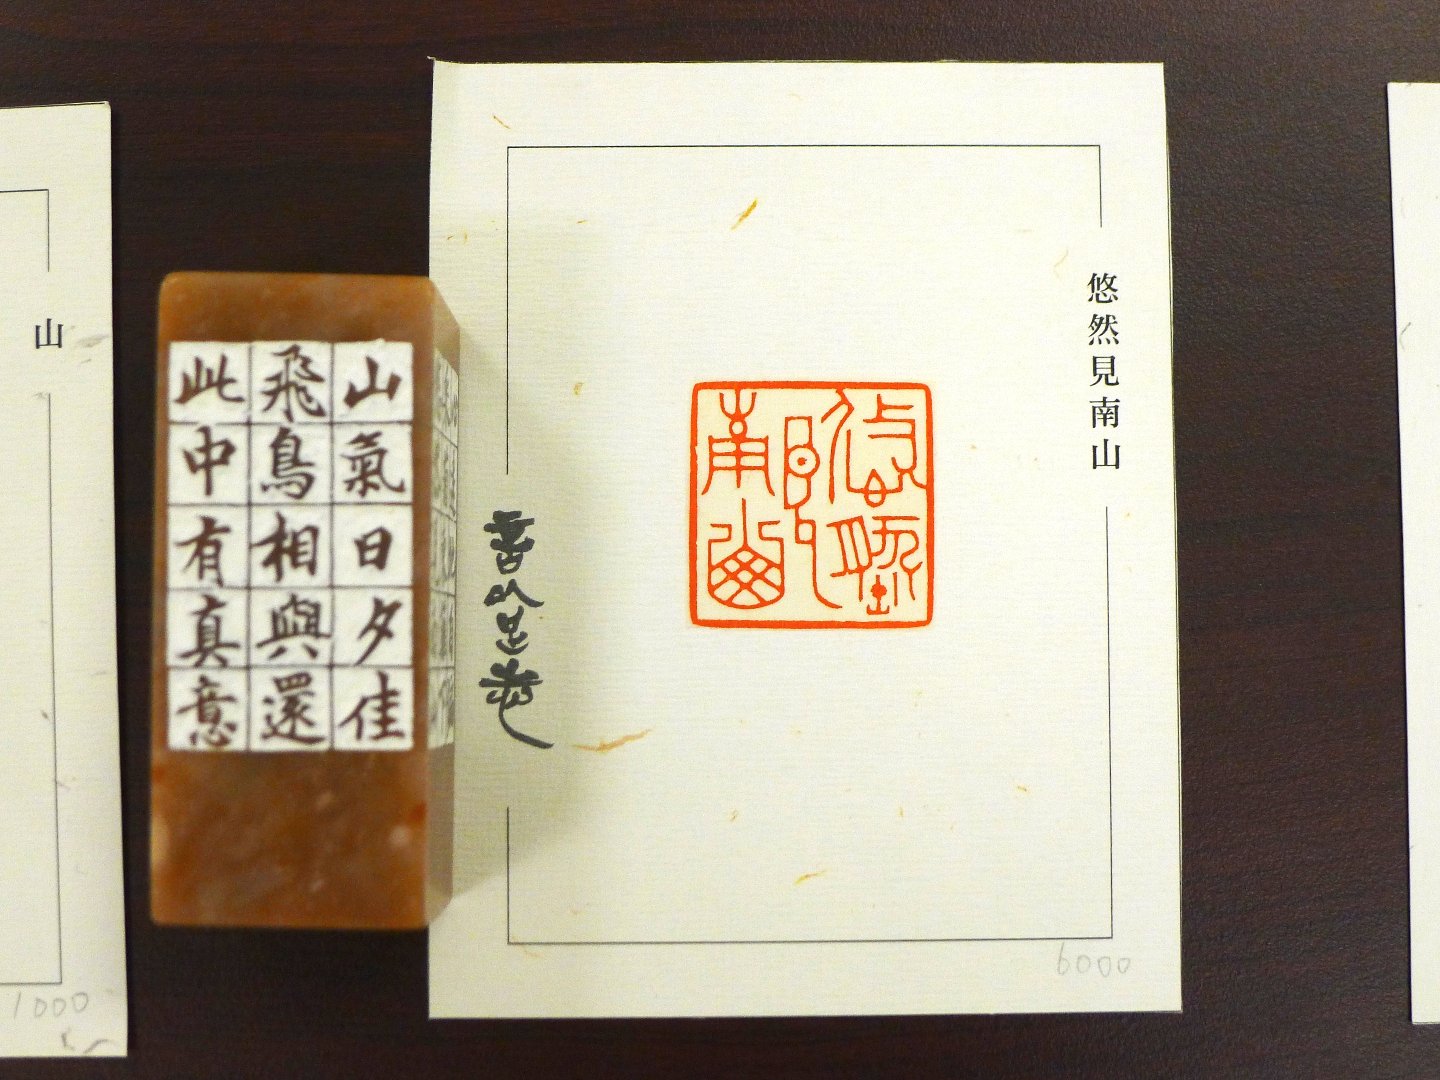 悠然見南山
悠然見南山
6000
山氣日夕佳
飛鳥相與還
此中有真意
山
1000